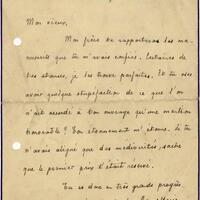 Mon vieux,
Mon frère te rapportera les ma-
nuscrits que tu m'avais confiés. Certaines de
tes stances, je les trouve parfaites. Et tu dis
avoir quelque stupéfaction de ce que l'on
n'ait accordé à ton ouvrage qu'une mention
honorable ? Ton étonnement m'étonne. Si tu
n'avais aligné que des médiocrités, sache
que le premier prix t'était réservé.
Tu es donc en très grands progrès,